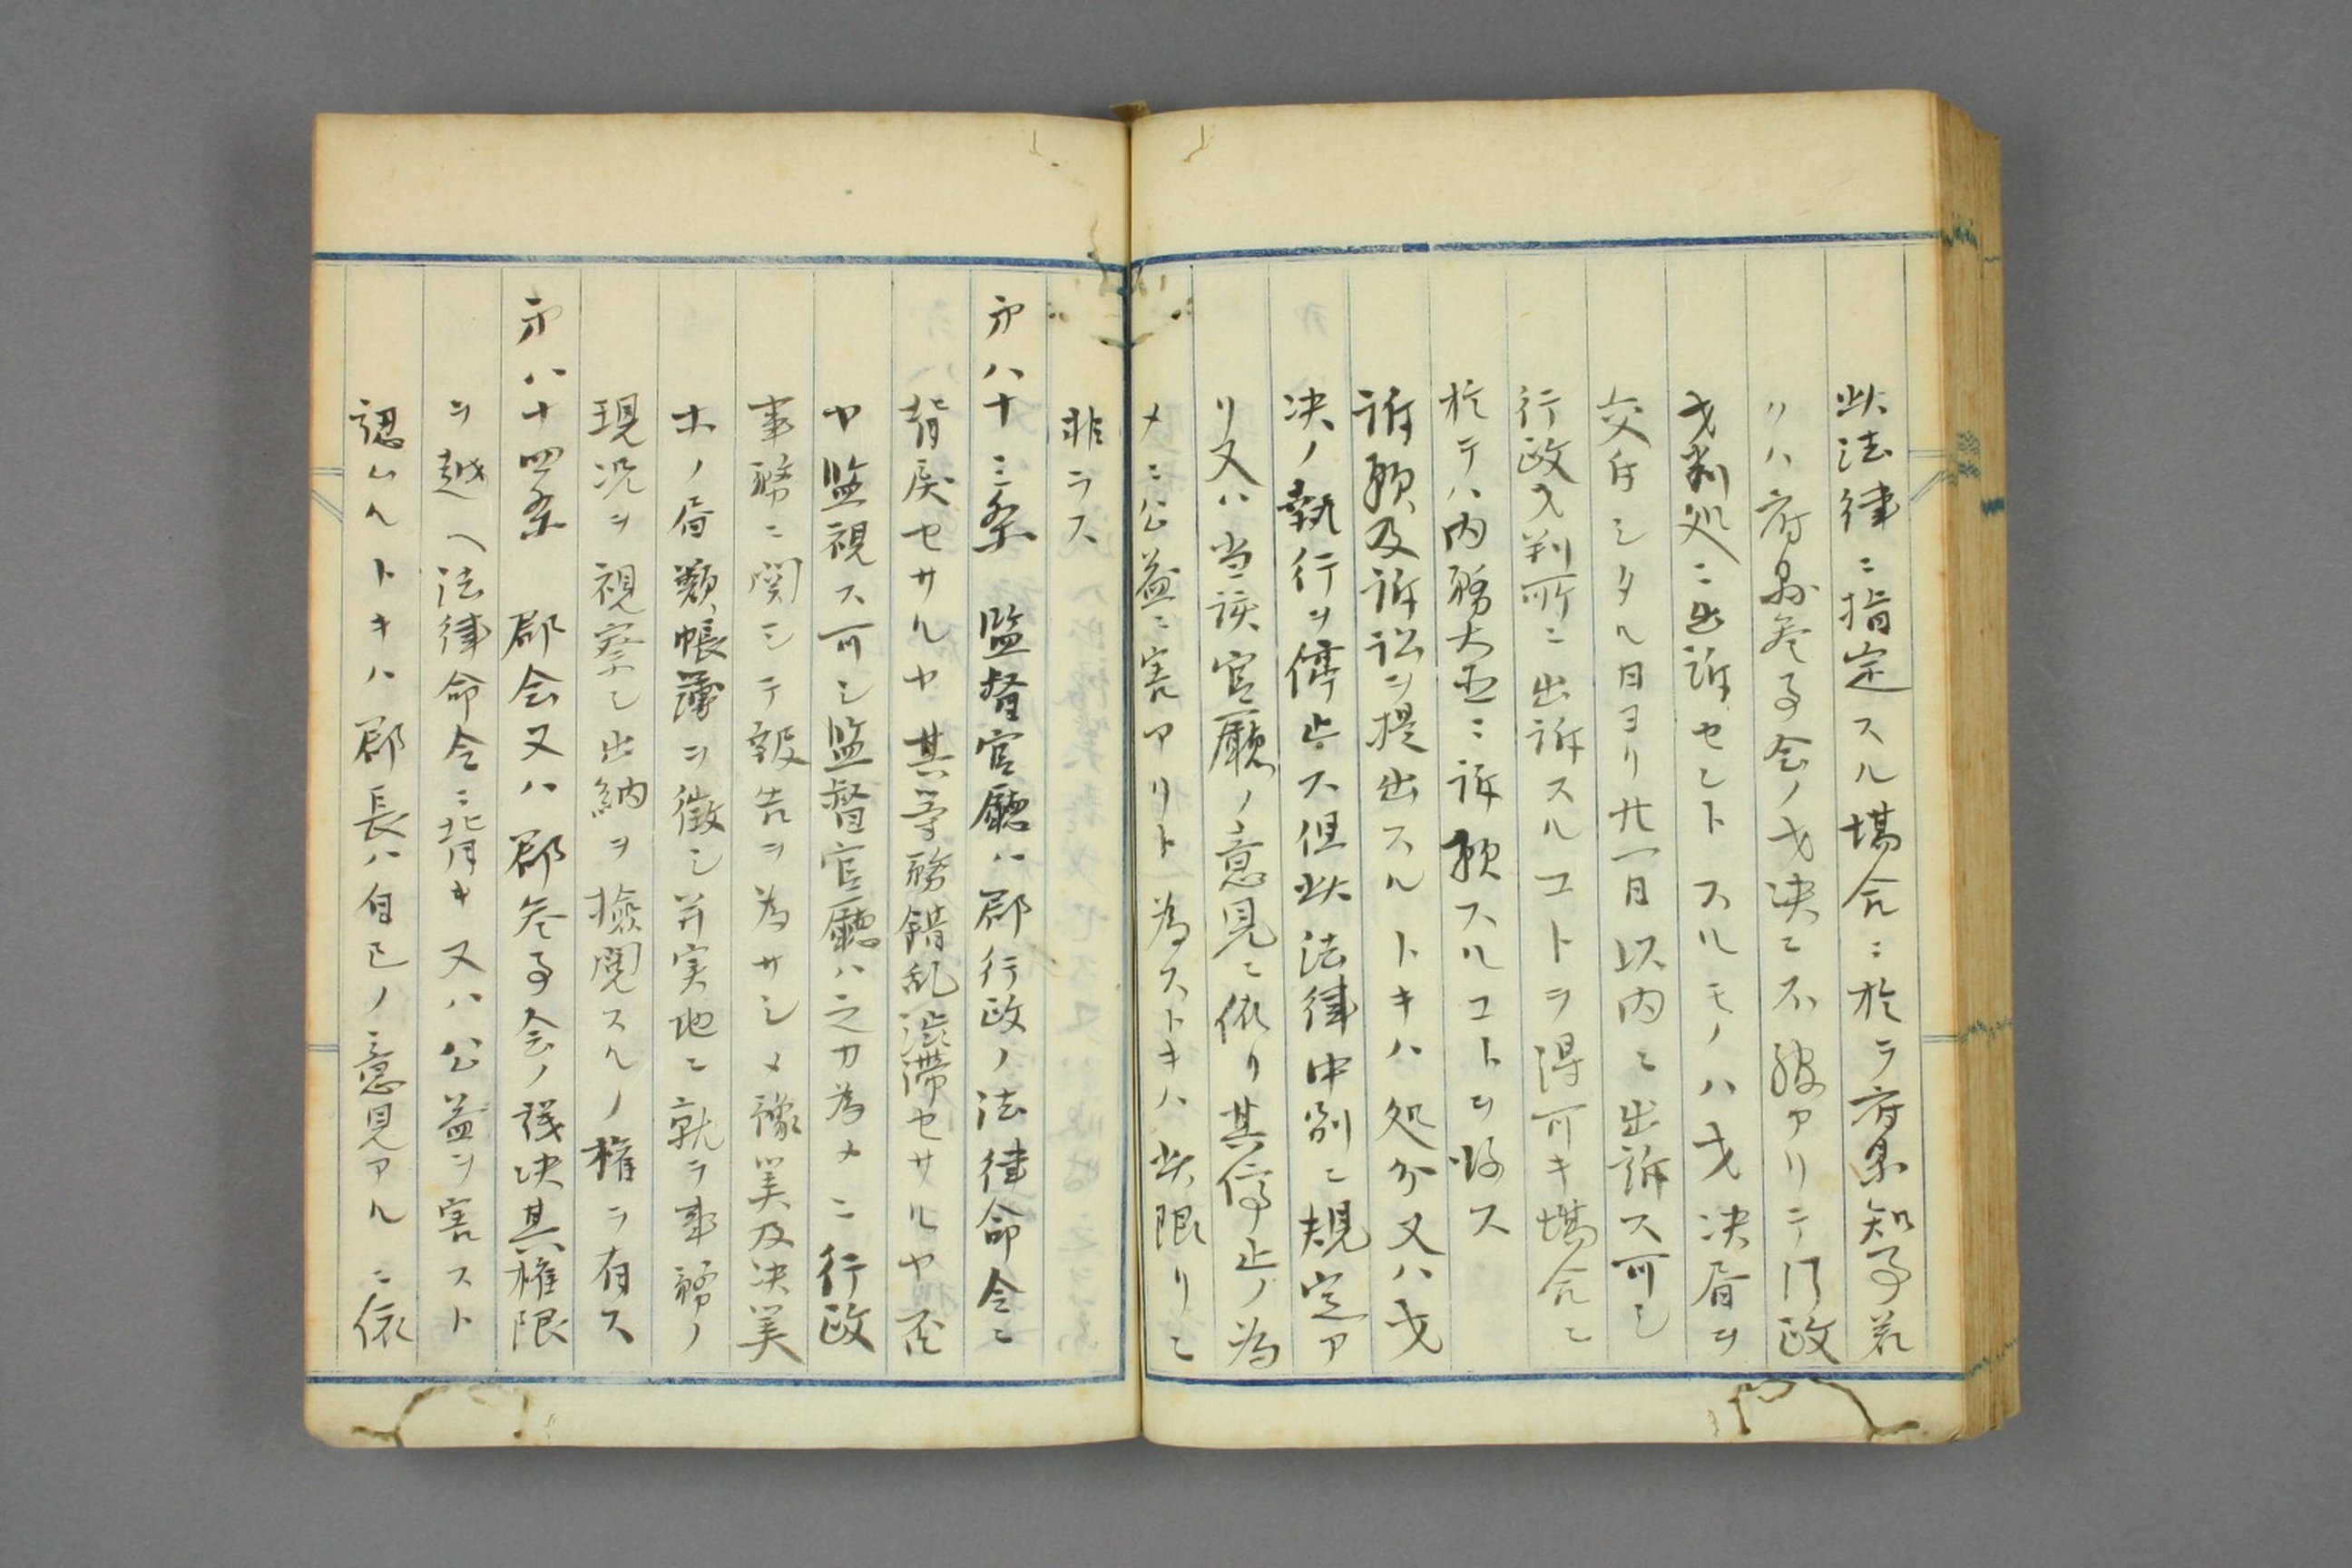 此法律ニ指定スル場合ニ於テ府県知事若
クハ府県参事会ノ裁決ニ不服アリテ行政
裁判処ニ出訴セントスルモノハ裁決書ヲ
交付シタル日ヨリ廿一日以内ニ出訴ス可シ
行政裁判所ニ出訴スルコトヲ得可キ場合ニ
於テハ内務大臣ニ訴願スルコトヲ得ス
訴願及訴訟ヲ提出スルトキハ処分又ハ裁
決ノ執行ヲ停止ス但此法律中別ニ規定ア
リ又ハ当該官廳ノ意見ニ依リ其停止ノ為
メニ公益ニ害アリト為ストキハ此限リニ
非ラス
第八十三条 監督官廳ハ郡行政ノ法律命令ニ
背戻セサルヤ其事務錯乱渋滞セサルヤ否
ヤ監視ス可シ監督官廳ハ之カ為メニ行政
事務ニ関シテ報告ヲ為サシメ豫算及决算
ホノ書類帳簿ヲ徴シ并実地ニ就テ事務ノ
現况ヲ視察シ出納ヲ撿閲スルノ権ヲ有ス
第八十四条 郡会又ハ郡参事会ノ議决其権限
ヲ越ヘ法律命令ニ背キ又ハ公益ヲ害スト
認ムルトキハ郡長ハ自己ノ意見アルニ依